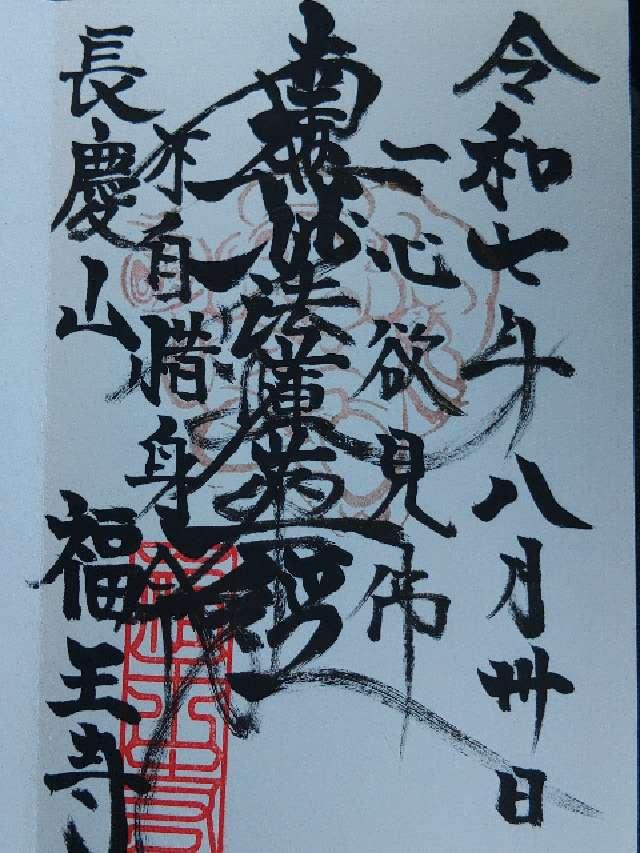 令和七年八月卅日
一心欲見佛
南無妙法蓮華経
不自惜身命
長慶山 福王寺